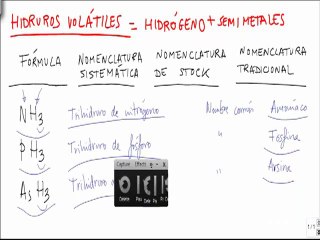 HIDRUROS VOLÁTILES = HIDRÓGENO + SEMIMETALES
FÓRMULA NOMENCLATURA SISTEMÁTICA NOMENCLATURA DE STOCK NOMENCLATURA TRADICIONAL
NH3 Trihidruro de nitrógeno Nombre común Amoniaco
PH3 Trihidruro de fósforo " Fosfina
AsH3 " Arsina
Capture Effects
Delete